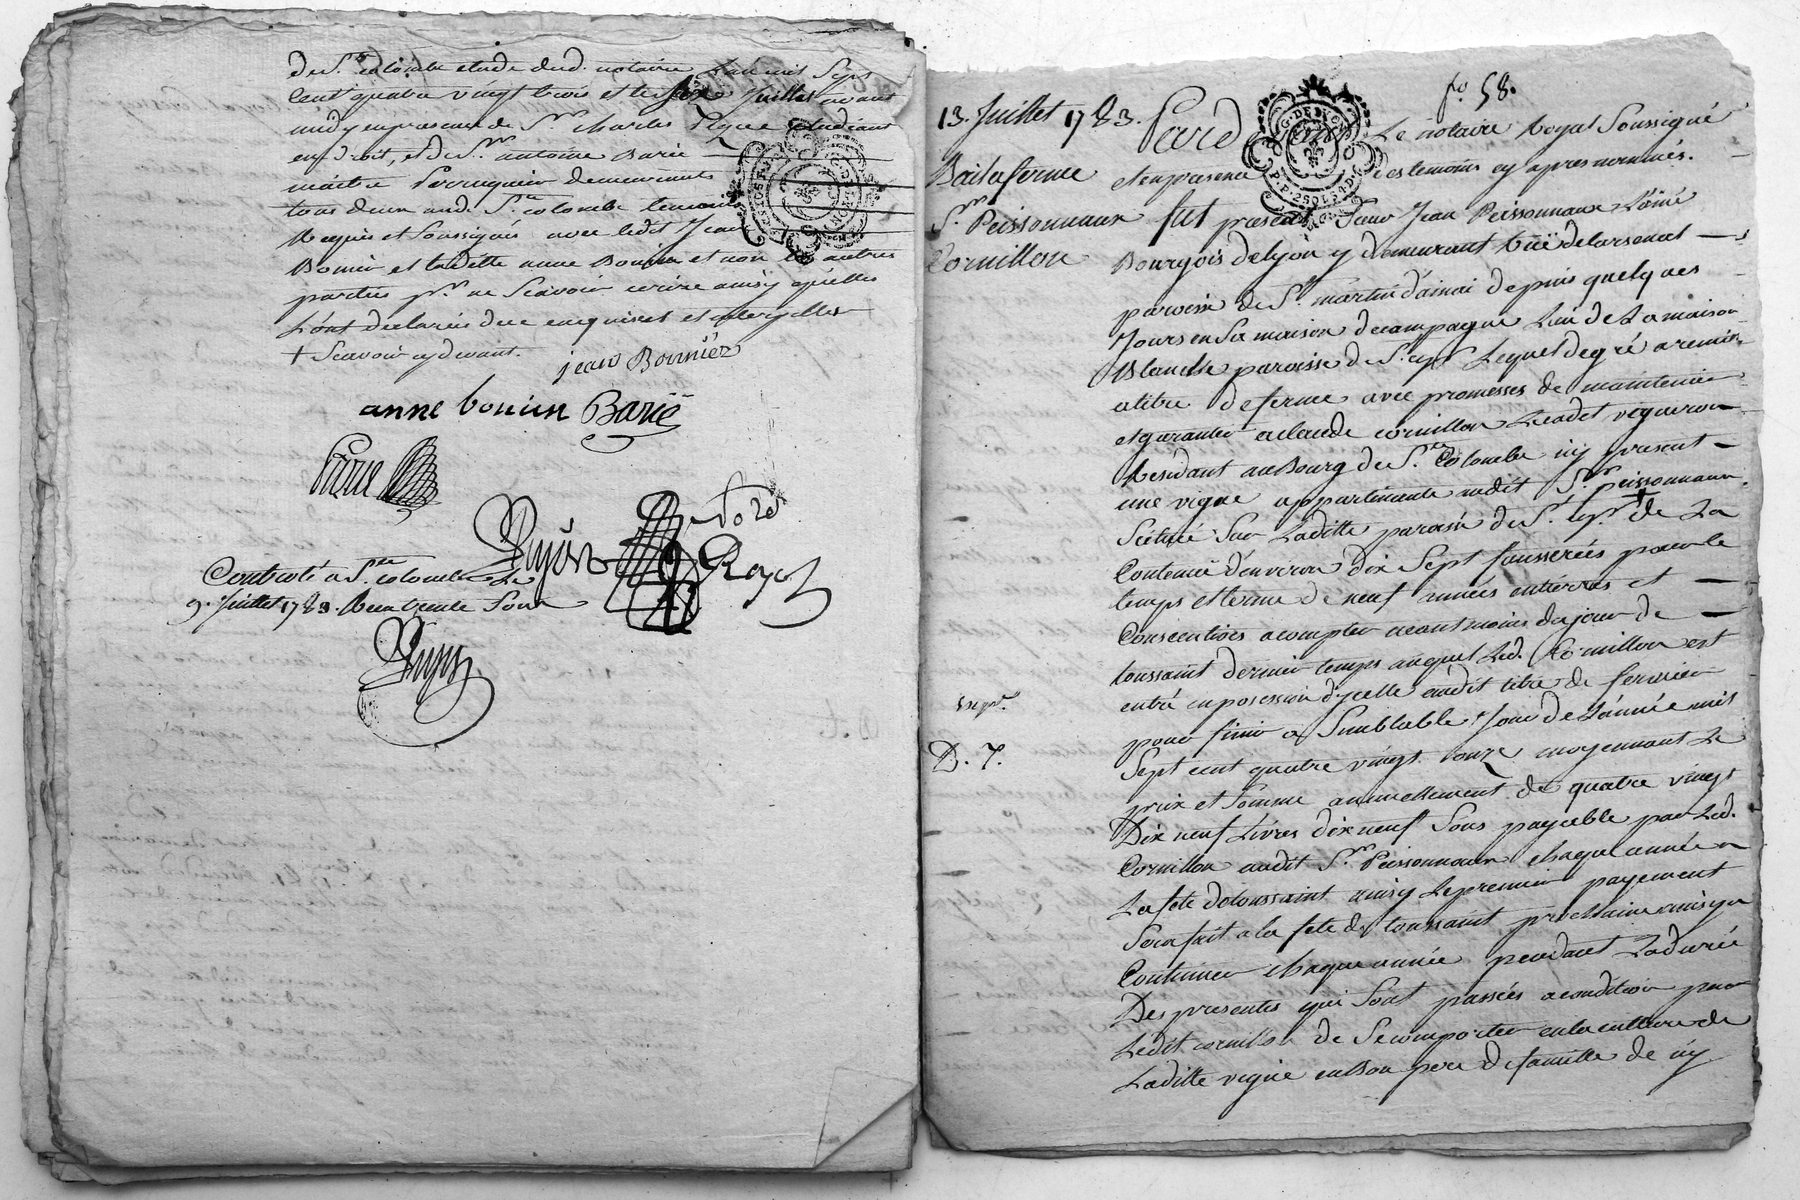 de Ste colombe etude dud. notaire L'an mil Sept
Cent quatre vingt trois et le six Juillet avant
midy en presence de Sr. Charles Pique etudiant
en droit, et de Sr. antoine Barié
maitre Perruquier demeurants
tous deux aud. Ste. colombe temoins
Requis et Soussignés avec ledit Jean
Bonnier et laditte anne Bonnier et non les autres
parties pr. ne Scavoir ecrire ainsy qu'elles
L'ont declarées de ce enquises et
+ Scavoir cy devant.
jean Bonnier
anne bonien Barié
Controlé a Ste. colombe Le
9. Juillet 1783. Reçu trente Sous
fo. 58.
13. Juillet 1783.
Bail a ferme
Sr. Peissonnaux
Cornillon
Pard Le notaire Royal Soussigné
et en presence des temoins cy apres nommés.
fut present Sieur Jean Peissonnaux L'ainé
Bourgois de Lyon y demeurant rüe de larsenat
paroisse de St. martin d'ainai depuis quelques
Jours en Sa maison de campagne Lieu de La maison
Blanche paroisse de St. cyr Lequel de gré a remis
a titre de ferme avec promesses de maintenir
et garantir a claude cornillon Le cadet vigneron
Residant au Bourg de Ste. Colombe icy present
une vigne appartenante audit Sr. peissonnaux
Scitué Sur Laditte paroisse de St. cyr de La
Contenüe d'environ dix Sept fousserées pour le
temps et terme de neuf années entierres et
Consecutives a compter neantmoins du jour de
toussaint dernier temps auquel Led. Cornillon est
entré en posession d'ycelle audit titre de fermier
pour finir a Semblable Jour de L'année mil
Sept cent quatre vingt onze moyennant Le
prix et Somme annuellement de quatre vingt
Dix neuf Livres dix neuf Sous payable par Led.
Cornillon audit Sr. Peissonnaux chaque année a
La fete de toussaint ainsy Le premier payement
Sera fait a la fete de toussaint prochaine ainsy a
Continuer chaque année pendant La durée
Des presentes qui Sont passées a condition pour
Ledit cornillon de Se comporter en la culture de
Laditte vigne en Bon pere de famille de n'y
D. 7.